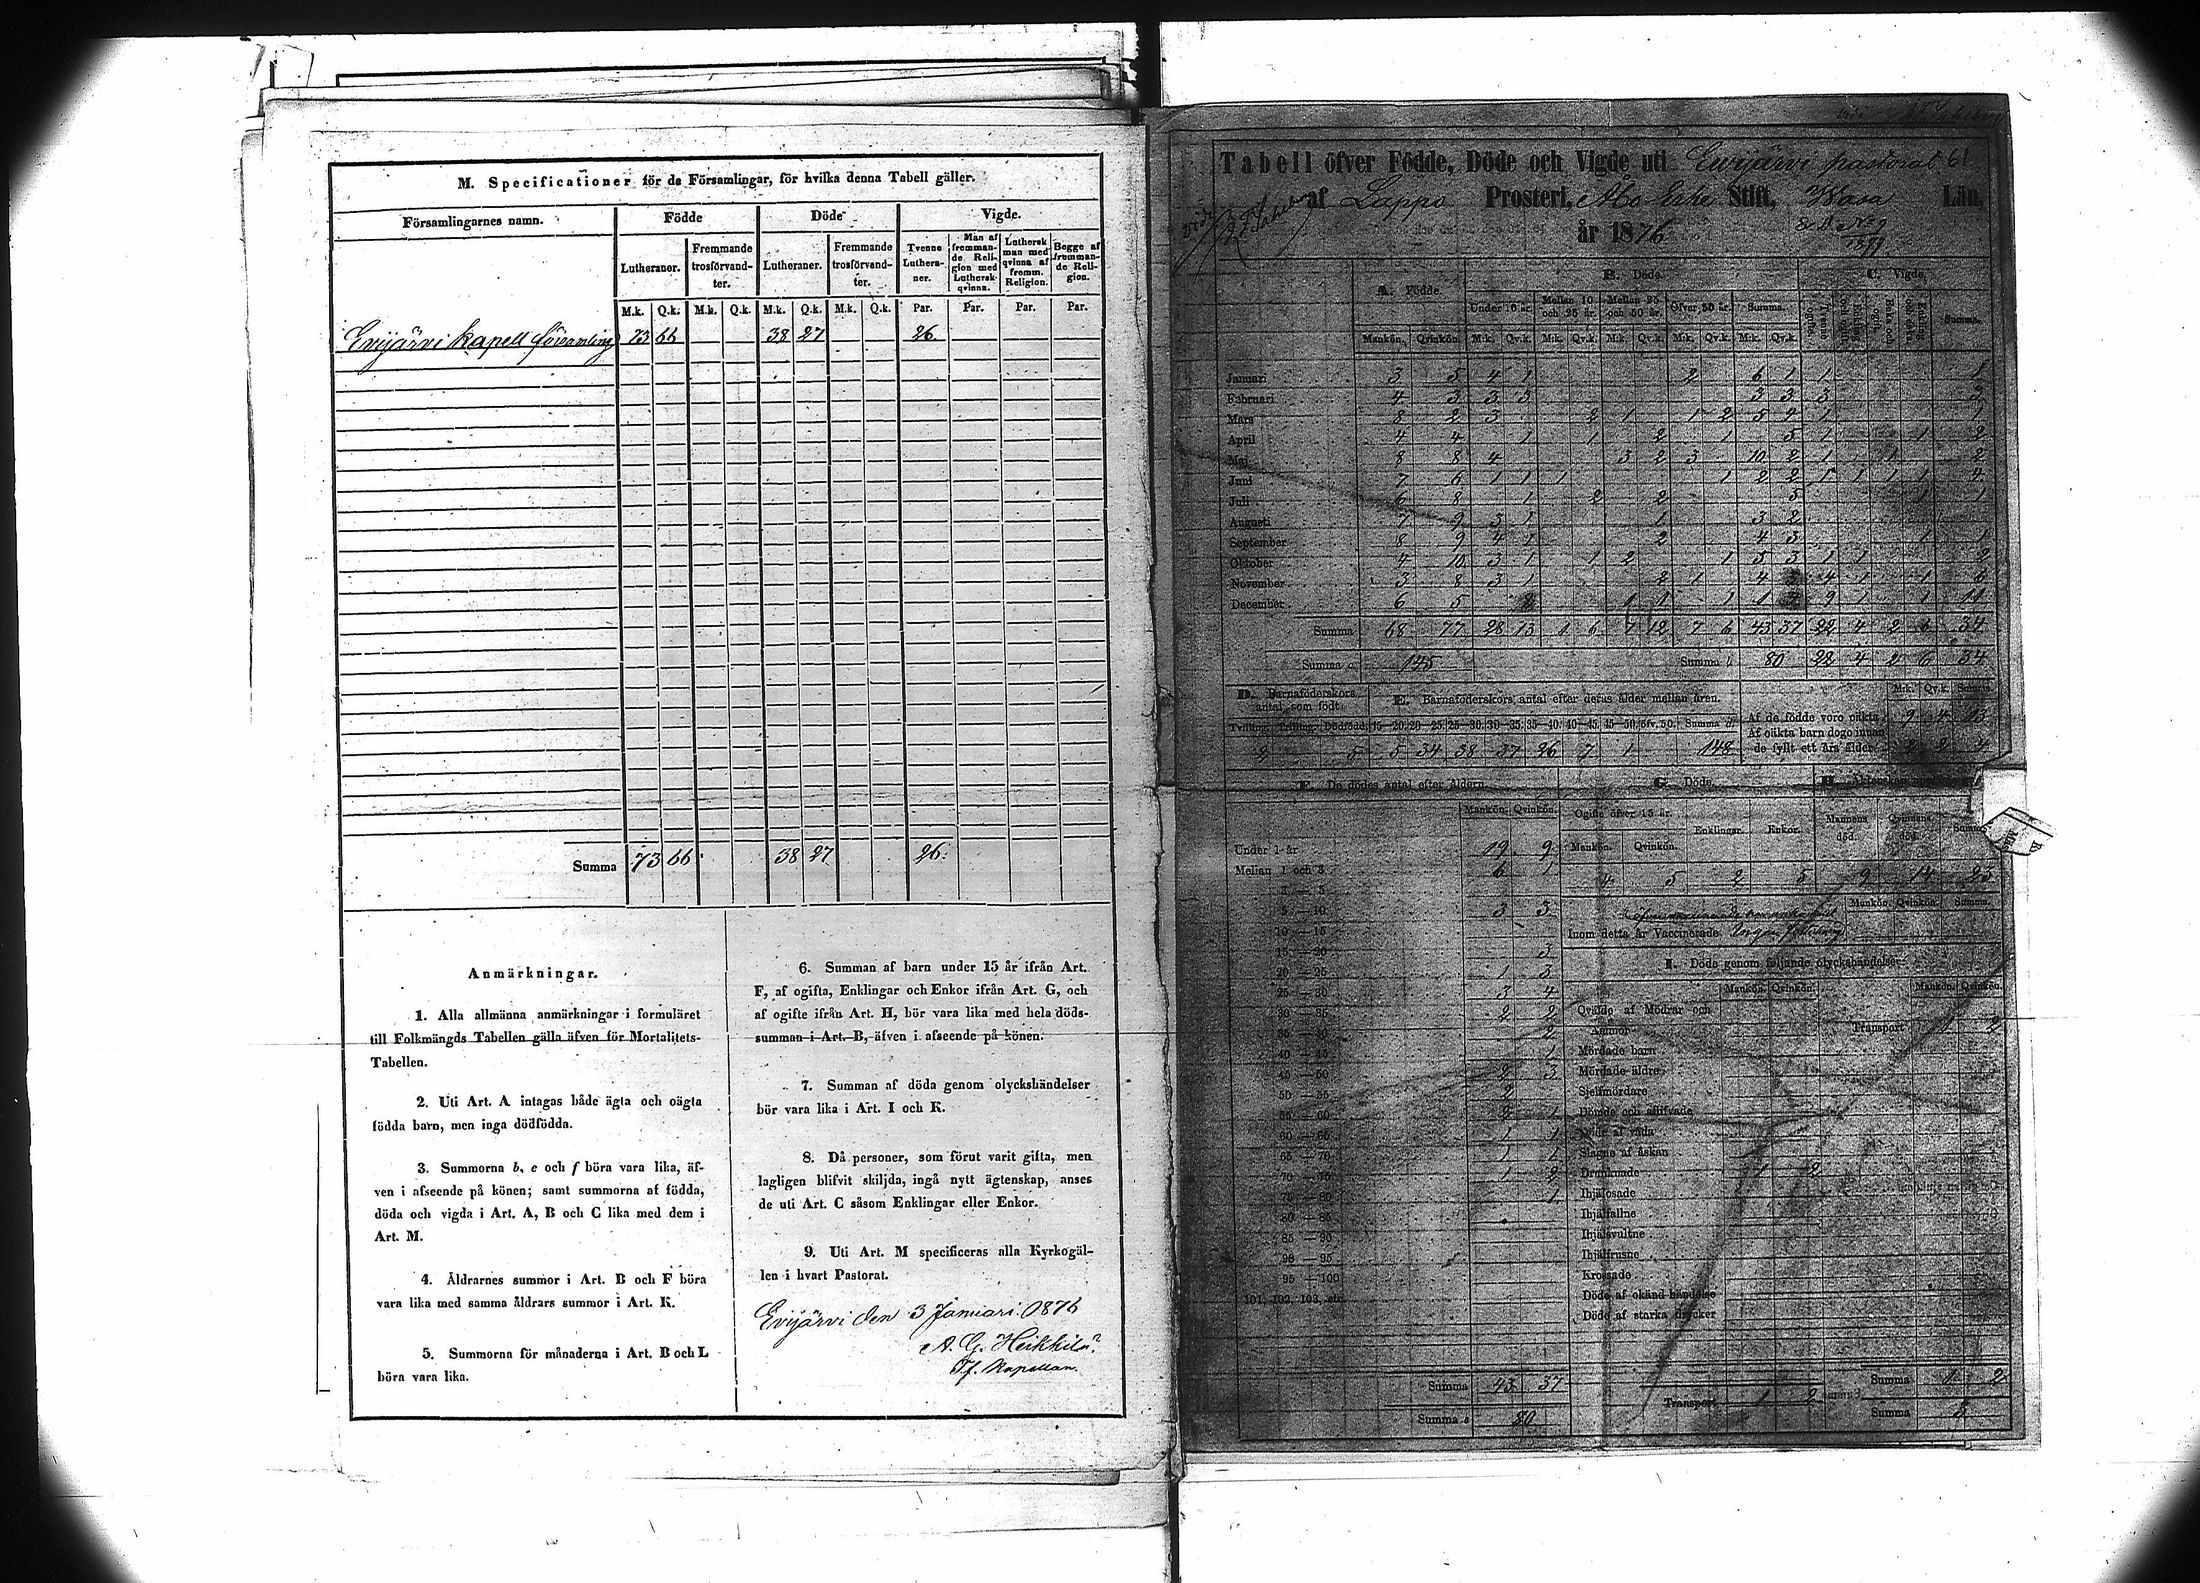 M. Specificationer för de Församlingar, för hvilka denna Tabell gäller.
Församlingarnes namn. Födde Döde Vigde.
Lutheraner. Fremmande trosförvandter. Lutheraner. Fremmande trosförvandter. Tvenne Lutheraner. Man af fremmande Religion med Luthersk qvinna. Luthersk man med qvinna af fremm. Religion. Begge af fremmande Religion.
M.k. Q.k. M.k. Q.k. M.k. Q.k. M.k. Q.k. Par. Par. Par. Par.
Evijärvi kapell församling 73 66 38 27 26.
Summa 73 66 38 27 26.
Anmärkningar.
1. Alla allmänna anmärkningar i formuläret
till Folkmängds Tabellen gälla äfven för Mortalitets-
Tabellen.
2. Uti Art. A intagas både ägta och oägta
födda barn, men inga dödfödda.
3. Summorna b, e och f böra vara lika, äf-
ven i afseende på könen; samt summorna af födda,
döda och vigda i Art. A, B och C lika med dem i
Art. M.
4. Åldrarnes summor i Art. B och F böra
vara lika med samma åldrars summor i Art. K.
5. Summorna för månaderna i Art. B och L
böra vara lika.
6. Summan af barn under 15 år ifrån Art.
F, af ogifta, Enklingar och Enkor ifrån Art. G, och
af ogifte ifrån Art. H, bör vara lika med hela döds-
summan i Art. B, äfven i afseende på könen.
7. Summan af döda genom olyckshändelser
bör vara lika i Art. I och K.
8. Då personer, som förut varit gifta, men
lagligen blifvit skiljda, ingå nytt ägtenskap, anses
de uti Art. C såsom Enklingar eller Enkor.
9. Uti Art. M specificeras alla Kyrkogäl-
len i hvart Pastorat.
Evijärvi den 3 Januari 1876
A. G. Heikkilä
Tf. Kapellan.
Tabell öfver Födde, Döde och Vigde uti Ewijärvi pastorat 61
af Lappo Prosteri, Åbo Erke Stift, Wasa Län,
år 1876
A. Födde. B. Döde. C. Vigde.
Under 10 år. Mellan 10 och 25 år. Mellan 25 och 50 år. Öfver 50 år. Summa. Summa.
Mankön. Qvinkön. M.k. Qv.k. M.k. Qv.k. M.k. Qv.k. M.k. Qv.k. M.k. Qv.k.
Januari 3 5 4 1 2 6 1 1 1
Februari 4 3 3 3 3 3 3 3
Mars 8 2 3 2 1 1 2 5 4 1 1
April 4 4 1 1 2 1 5 1 1 2
Maj 8 8 4 3 2 3 10 2 1 1 2
Juni 7 6 1 1 1 1 2 2 1 1 1 1 4
Juli 6 8 1 2 2 5 1 1
Augusti 7 9 3 1 1 3 2
September 8 9 4 1 2 4 3 1 1
Oktober 4 10 3 1 1 2 1 5 3 1 1 2
November 3 8 3 1 2 1 4 3 4 1 1 6
December 6 5 2 1 1 1 1 4 9 1 1 11
Summa 68 77 28 13 1 6 7 12 7 6 43 37 22 4 2 6 34
Summa a 145 Summa b 80 22 4 2 6 34
D. Barnaföderskors antal, som födt: E. Barnaföderskors antal efter deras ålder mellan åren. M.k. Qv.k. Summa.
Tvilling. Trilling. Dödfödd. 15—20. 20—25. 25—30. 30—35. 35—40. 40—45. 45—50. öfv. 50. Summa
Af de födde voro oäkta 9 4 13
Af oäkta barn dogo innan de fyllt ett års ålder 2 2 4
2 5 5 34 38 37 26 7 1 148
F. De dödes antal efter åldern. G. Döde.
Mankön. Qvinkön. Ogifte öfver 15 år. Enklingar. Enkor. Mannens död. Qvinnans död. Summa
Under 1 år 19 9 Mankön. Qvinkön.
Mellan 1 och 3 6 1
4 5 2 5 9 14 23
3 — 5
5 — 10 3 3
10 — 15
15 — 20 3
20 — 25 1 3
25 — 30 3 4
30 — 35 2 2
35 — 40 2
40 — 45 1
45 — 50 2 3
50 — 55 2
55 — 60 2 1
60 — 65 1 1
65 — 70 1 1
70 — 75 1 2
75 — 80 1
80 — 85
85 — 90
90 — 95
95 — 100
101, 102, 103, etc.
Summa 43 37
Summa e 80
Mankön. Qvinkön. Summa.
Inom detta år Vaccinerade
I. Döde genom följande olyckshändelser:
Mankön. Qvinkön. Mankön. Qvinkön.
Qväfde af Mödrar och Ammor Transport 1 2
Mördade barn
Mördade äldre
Sjelfmördare
Dömde och aflifvade
Döde af våda
Slagne af åskan
Drunknade 1 2
Ihjälosade
Ihjälfallne
Ihjälsvultne
Ihjälfrusne
Krossade
Döde af okänd händelse
Döde af starka drycker
Transport 1 2
Summa 1 2
Summa 3